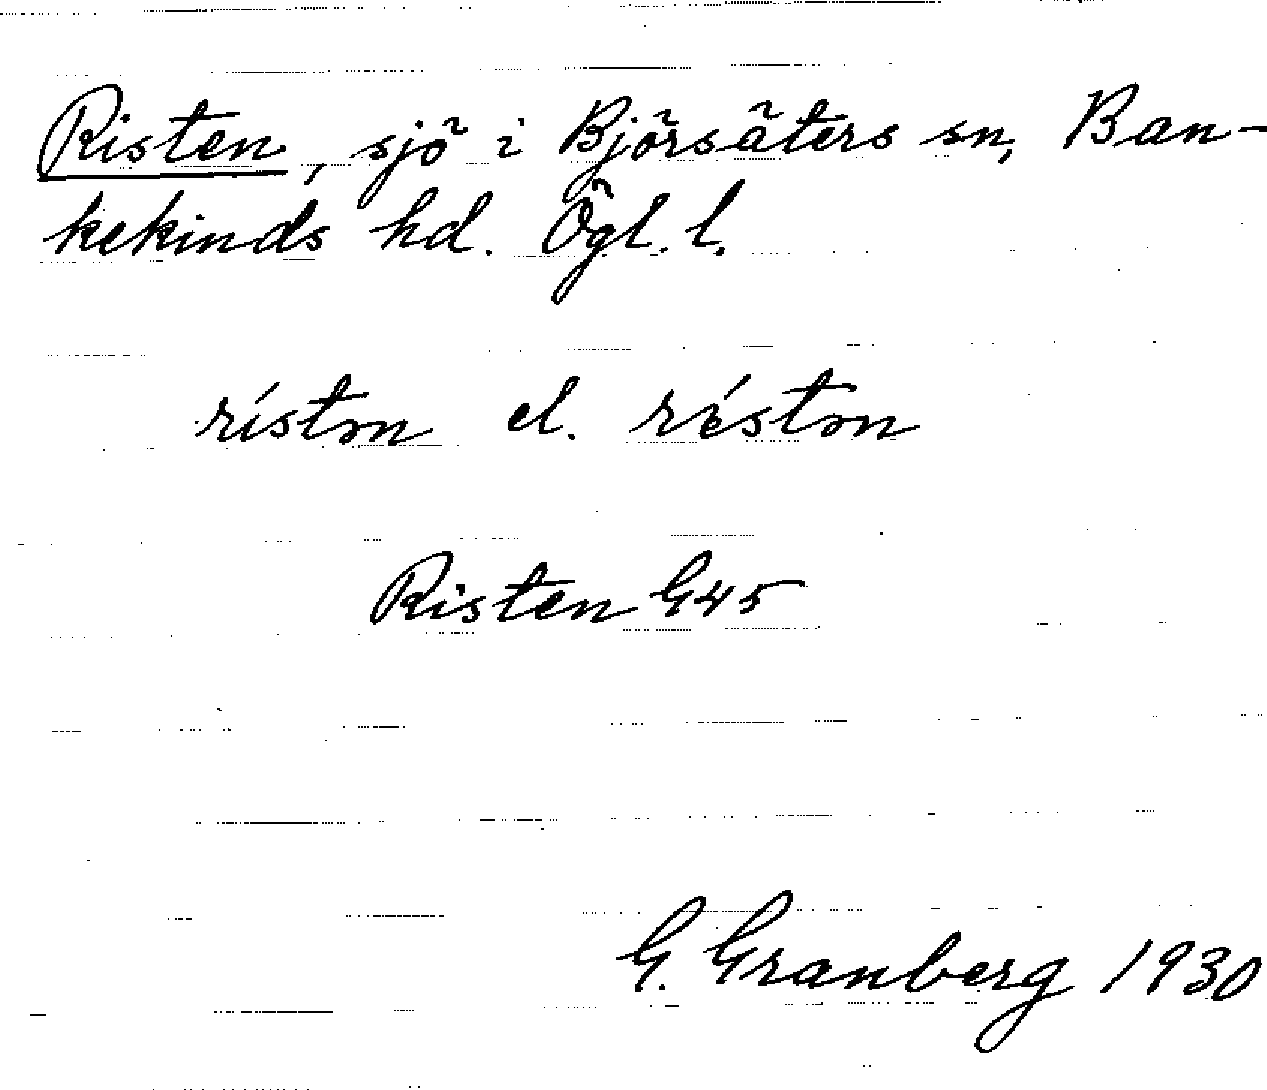 Risten, sjö i Björsäters sn, Ban-
kekinds hd. Ögl. l.
rístən el. réstən
Risten G45
G. Granberg 1930